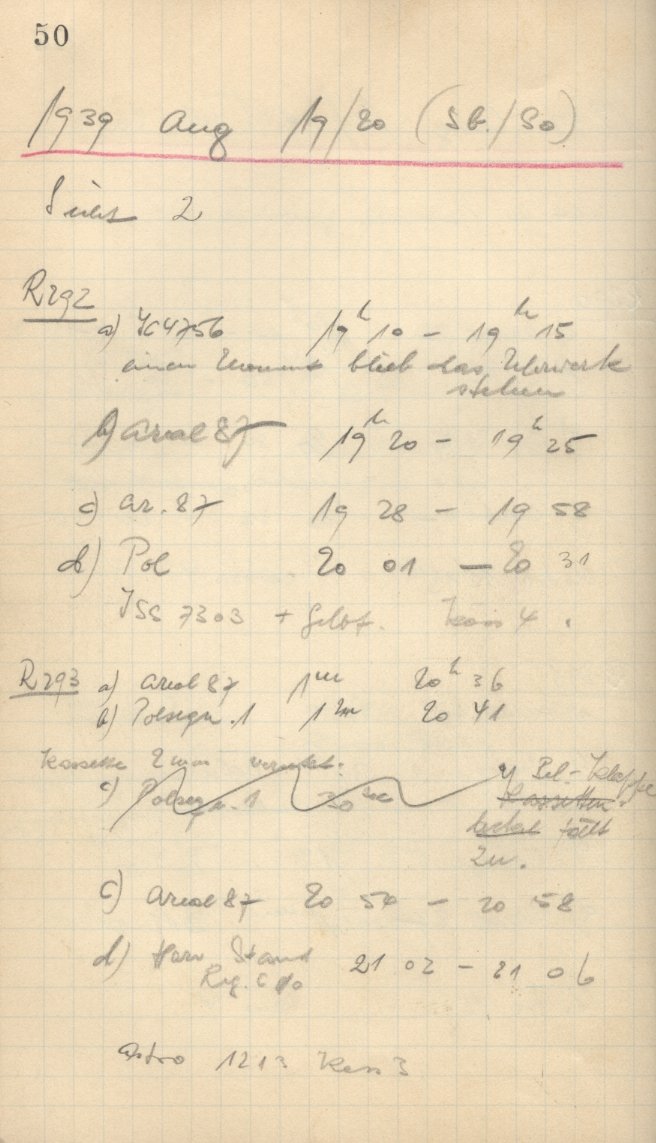 50
1939 Aug 19/20 (Sb./So)
Sicht 2
R292
a) IC4756 19h 10 - 19h 15
einen Moment blieb das Uhrwerk
stehen
b) Areal 87 19h 20 - 19h 25
c) Ar. 87 19 28 - 19 58
d) Pol 20 01 - 20 31
ISS 7303 + Gelbf. Kass 4.
R293 a) Areal 87 1m 20h 36
b) Polsequ. 1 1m 20 41
Kassette 2 mm
c) Polsequ. 1 30 Bel-Klappe
Kassetten
deckel fällt
zu.
c) Areal 87 20 54 - 20 58
d) Harv Stand 21 02 - 21 06
Reg. C 10
Astro 1213 Kass 3